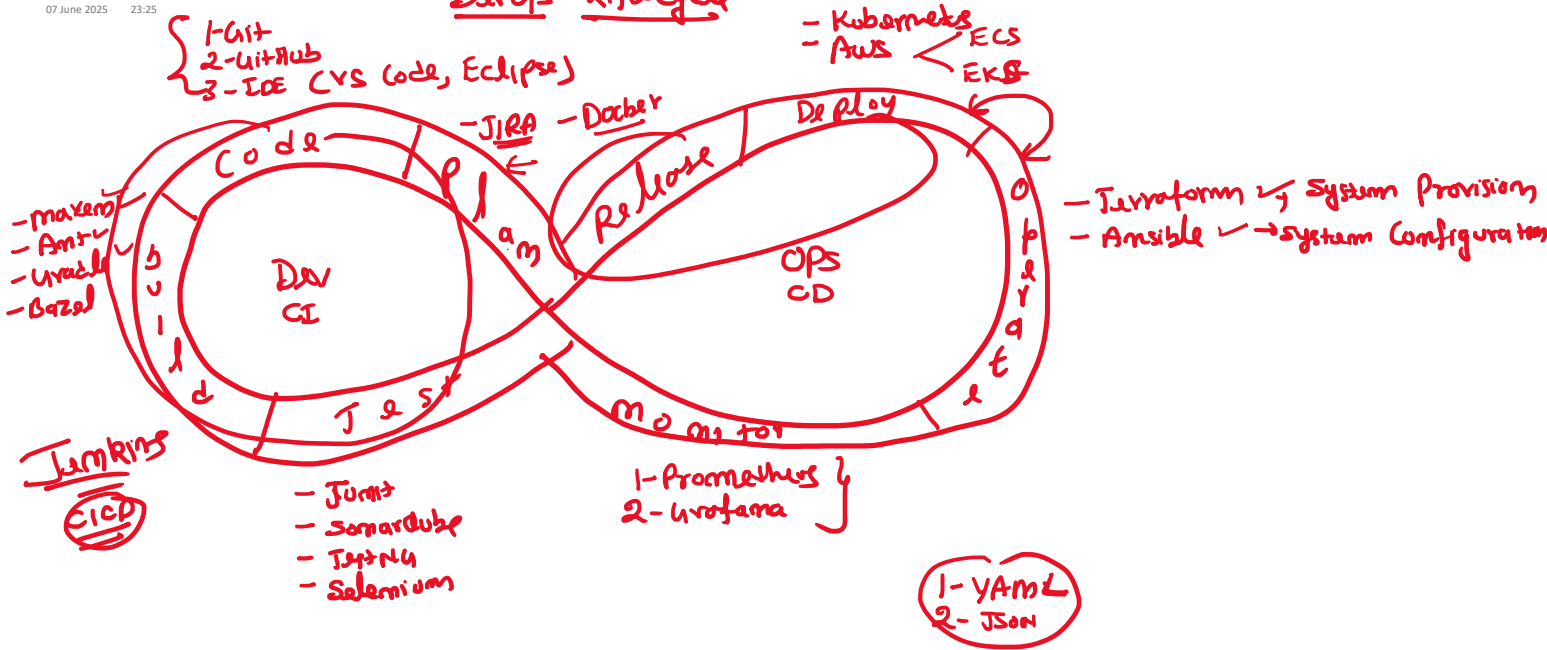 07 June 2025 23:25
1-Git
2-GitHub
3-IDE (VS Code, Eclipse)
- Kubernets
- Aws
ECS
EKS
- JIRA
- Docker
Code
Plan
Release
Deploy
Operate
- Terraform → System Provision
- Ansible → System Configuration
- Maven
- Ant
- Gradle
- Bazel
Build
Dev
CI
OPS
CD
Test
Monitor
Jenkins
CICD
- Junit
- SonarQube
- TestNG
- Selenium
1-Prometheus
2-Grafana
1-YAML
2-JSON